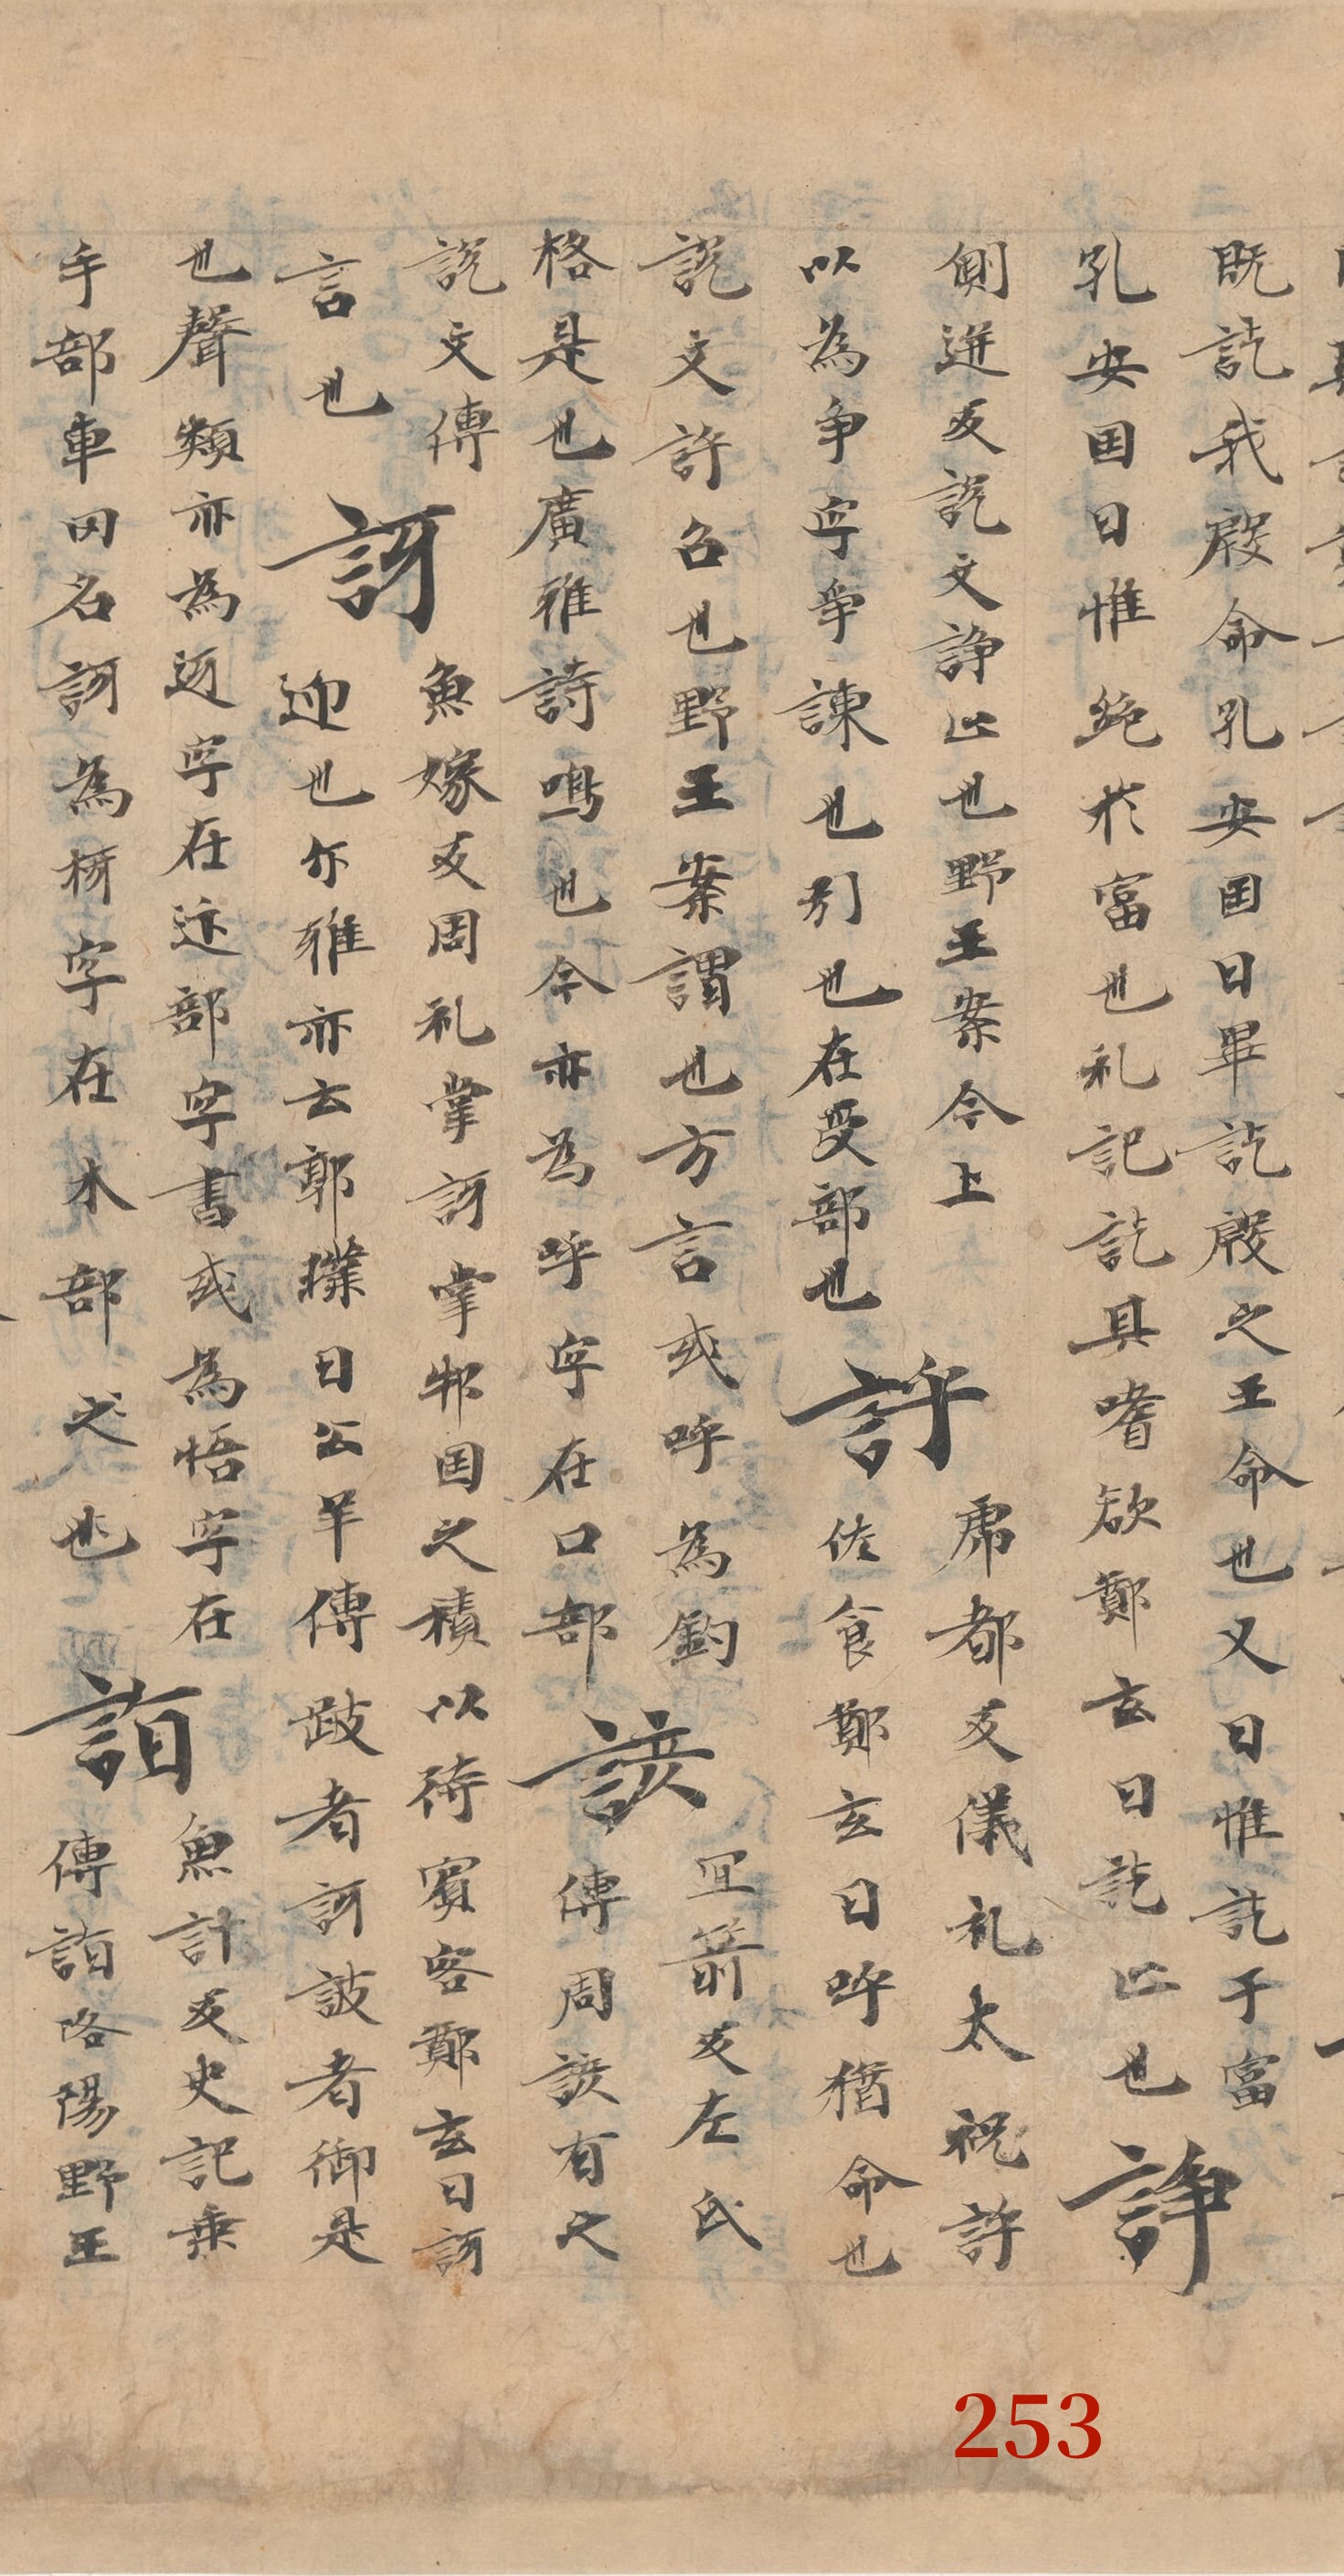 既訖我殷命孔安国曰畢訖殷之王命也又曰惟訖于富
孔安国曰惟絶於富也礼記訖其嗜欲鄭玄曰訖止也諍
側迸反説文諍止也野王案今上
以為争字争諫也別也在受部也
評虖都反儀礼太祝評
佐食鄭玄曰呼猶命也
説文評召也野王案謂也方言或呼為鈞
格是也廣雅詩鳴也今亦為呼字在口部
諺冝箭反左氏
傳周諺有之
説文傳
言也
訝魚嫁反周礼掌訝掌邦国之積以待賓客鄭玄曰訝
迎也尓雅亦云郭璞曰公羊傳跛者訝詖者御是
也聲類亦為迓字在辵部字書或為悟字在
手部車罔名訝為枒字在木部之也
詣魚計反史記乗
傳詣洛陽野王
253